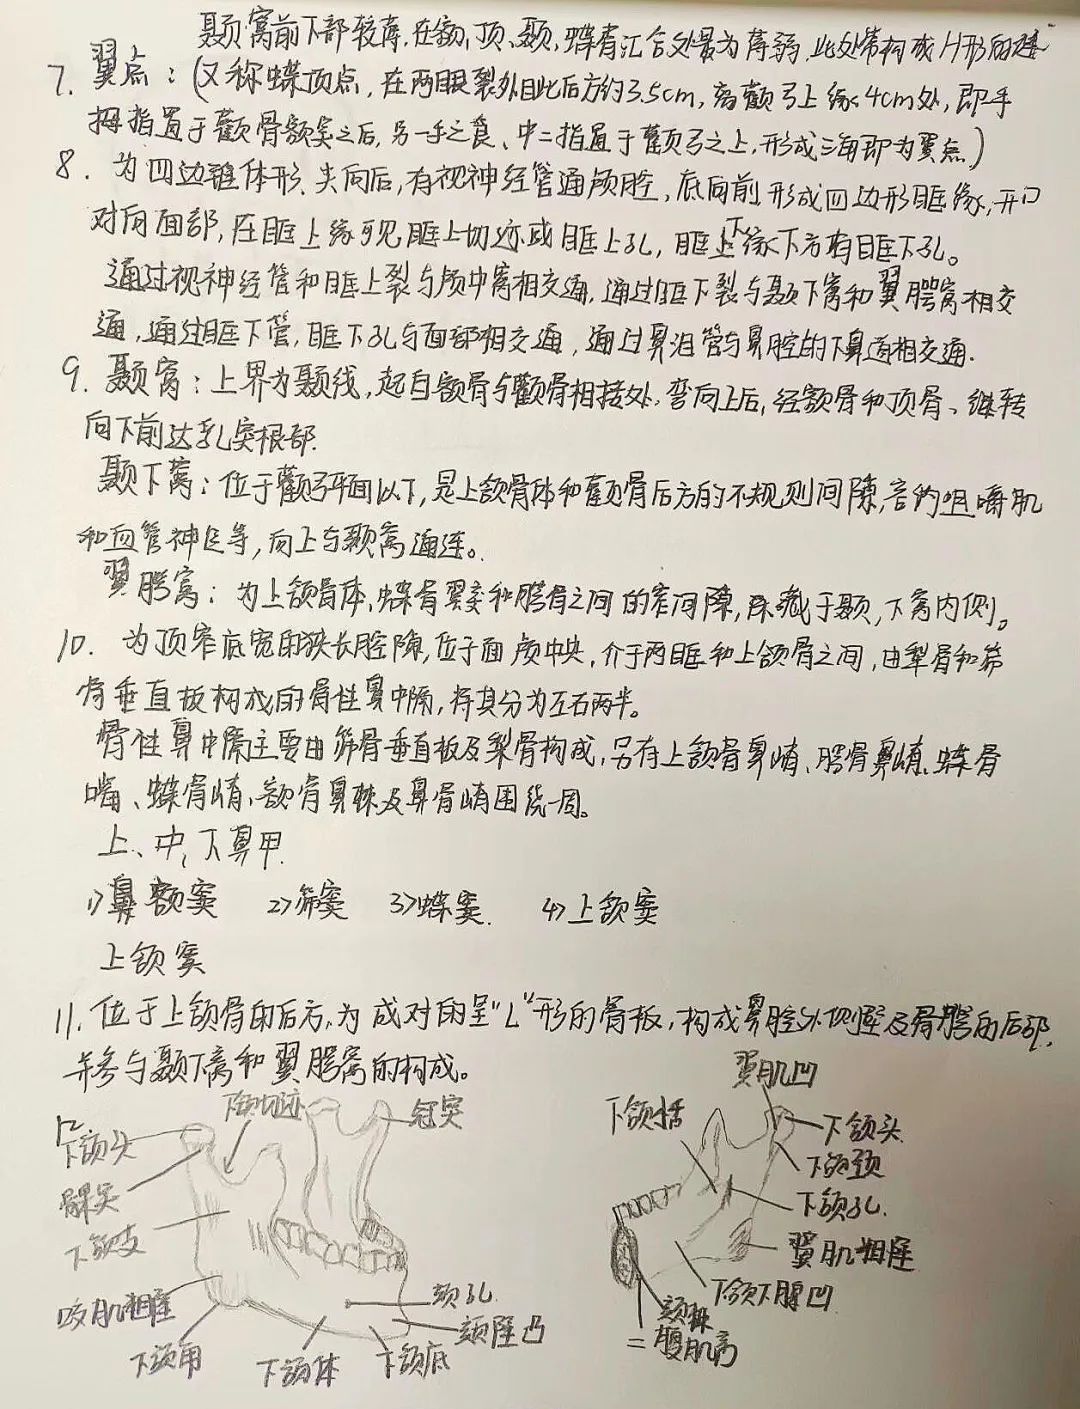 颞窝前下部较薄,在额、顶、颞、蝶骨汇合处最为薄弱,此处常构成H形的缝
7. 翼点:(又称蝶顶点,在两眼裂外目此后方约3.5cm,离颧弓上缘4cm处,即手
拇指置于颧骨额突之后,另一手之食、中二指置于颧弓之上,形成三角即为翼点)
8. 为四边锥体形,尖向后,有视神经管通颅腔,底向前形成四边形眶缘,开口
对向面部,在眶上缘可见眶上切迹或眶上孔,眶下缘下方有眶下孔。
通过视神经管和眶上裂与颅中窝相交通,通过眶下裂与颞下窝和翼腭窝相交
通,通过眶下管,眶下孔与面部相交通,通过鼻泪管与鼻腔的下鼻道相交通.
9. 颞窝:上界为颞线,起自额骨与颧骨相接处,弯向上后,经额骨和顶骨、继转
向下前达乳突根部.
颞下窝:位于颧弓平面以下,是上颌骨体和颧骨后方的不规则间隙,含的咀嚼肌
和血管神经等,向上与颞窝通连。
翼腭窝:为上颌骨体,蝶骨翼突和腭骨之间的窄间隙,深藏于颞,下窝内侧。
10. 为顶窄底宽的狭长腔隙,位于面颅中央,介于两眶和上颌骨之间,由犁骨和筛
骨垂直板构成的骨性鼻中隔,将其分为左右两半。
骨性鼻中隔主要由筛骨垂直板及犁骨构成,另有上颌骨鼻嵴、腭骨鼻嵴、蝶骨
嘴、蝶骨嵴,额骨鼻棘及鼻骨嵴围绕一周。
上、中、下鼻甲.
1>鼻额窦 2>筛窦 3>蝶窦. 4>上颌窦
上颌窦
11. 位于上颌骨的后方,为成对的呈"L"形的骨板,构成鼻腔外侧壁及骨腭的后部,
并参与颞下窝和翼腭窝的构成。
翼肌凹
下颌切迹 冠突 下颌小舌 下颌头
12
下颌头 下颌颈
髁突 下颌孔.
下颌支 翼肌粗隆
咬肌粗隆 颏孔 颏棘 下颌下腺凹
颏隆凸 二腹肌窝
下颌角 下颌体 下颌底